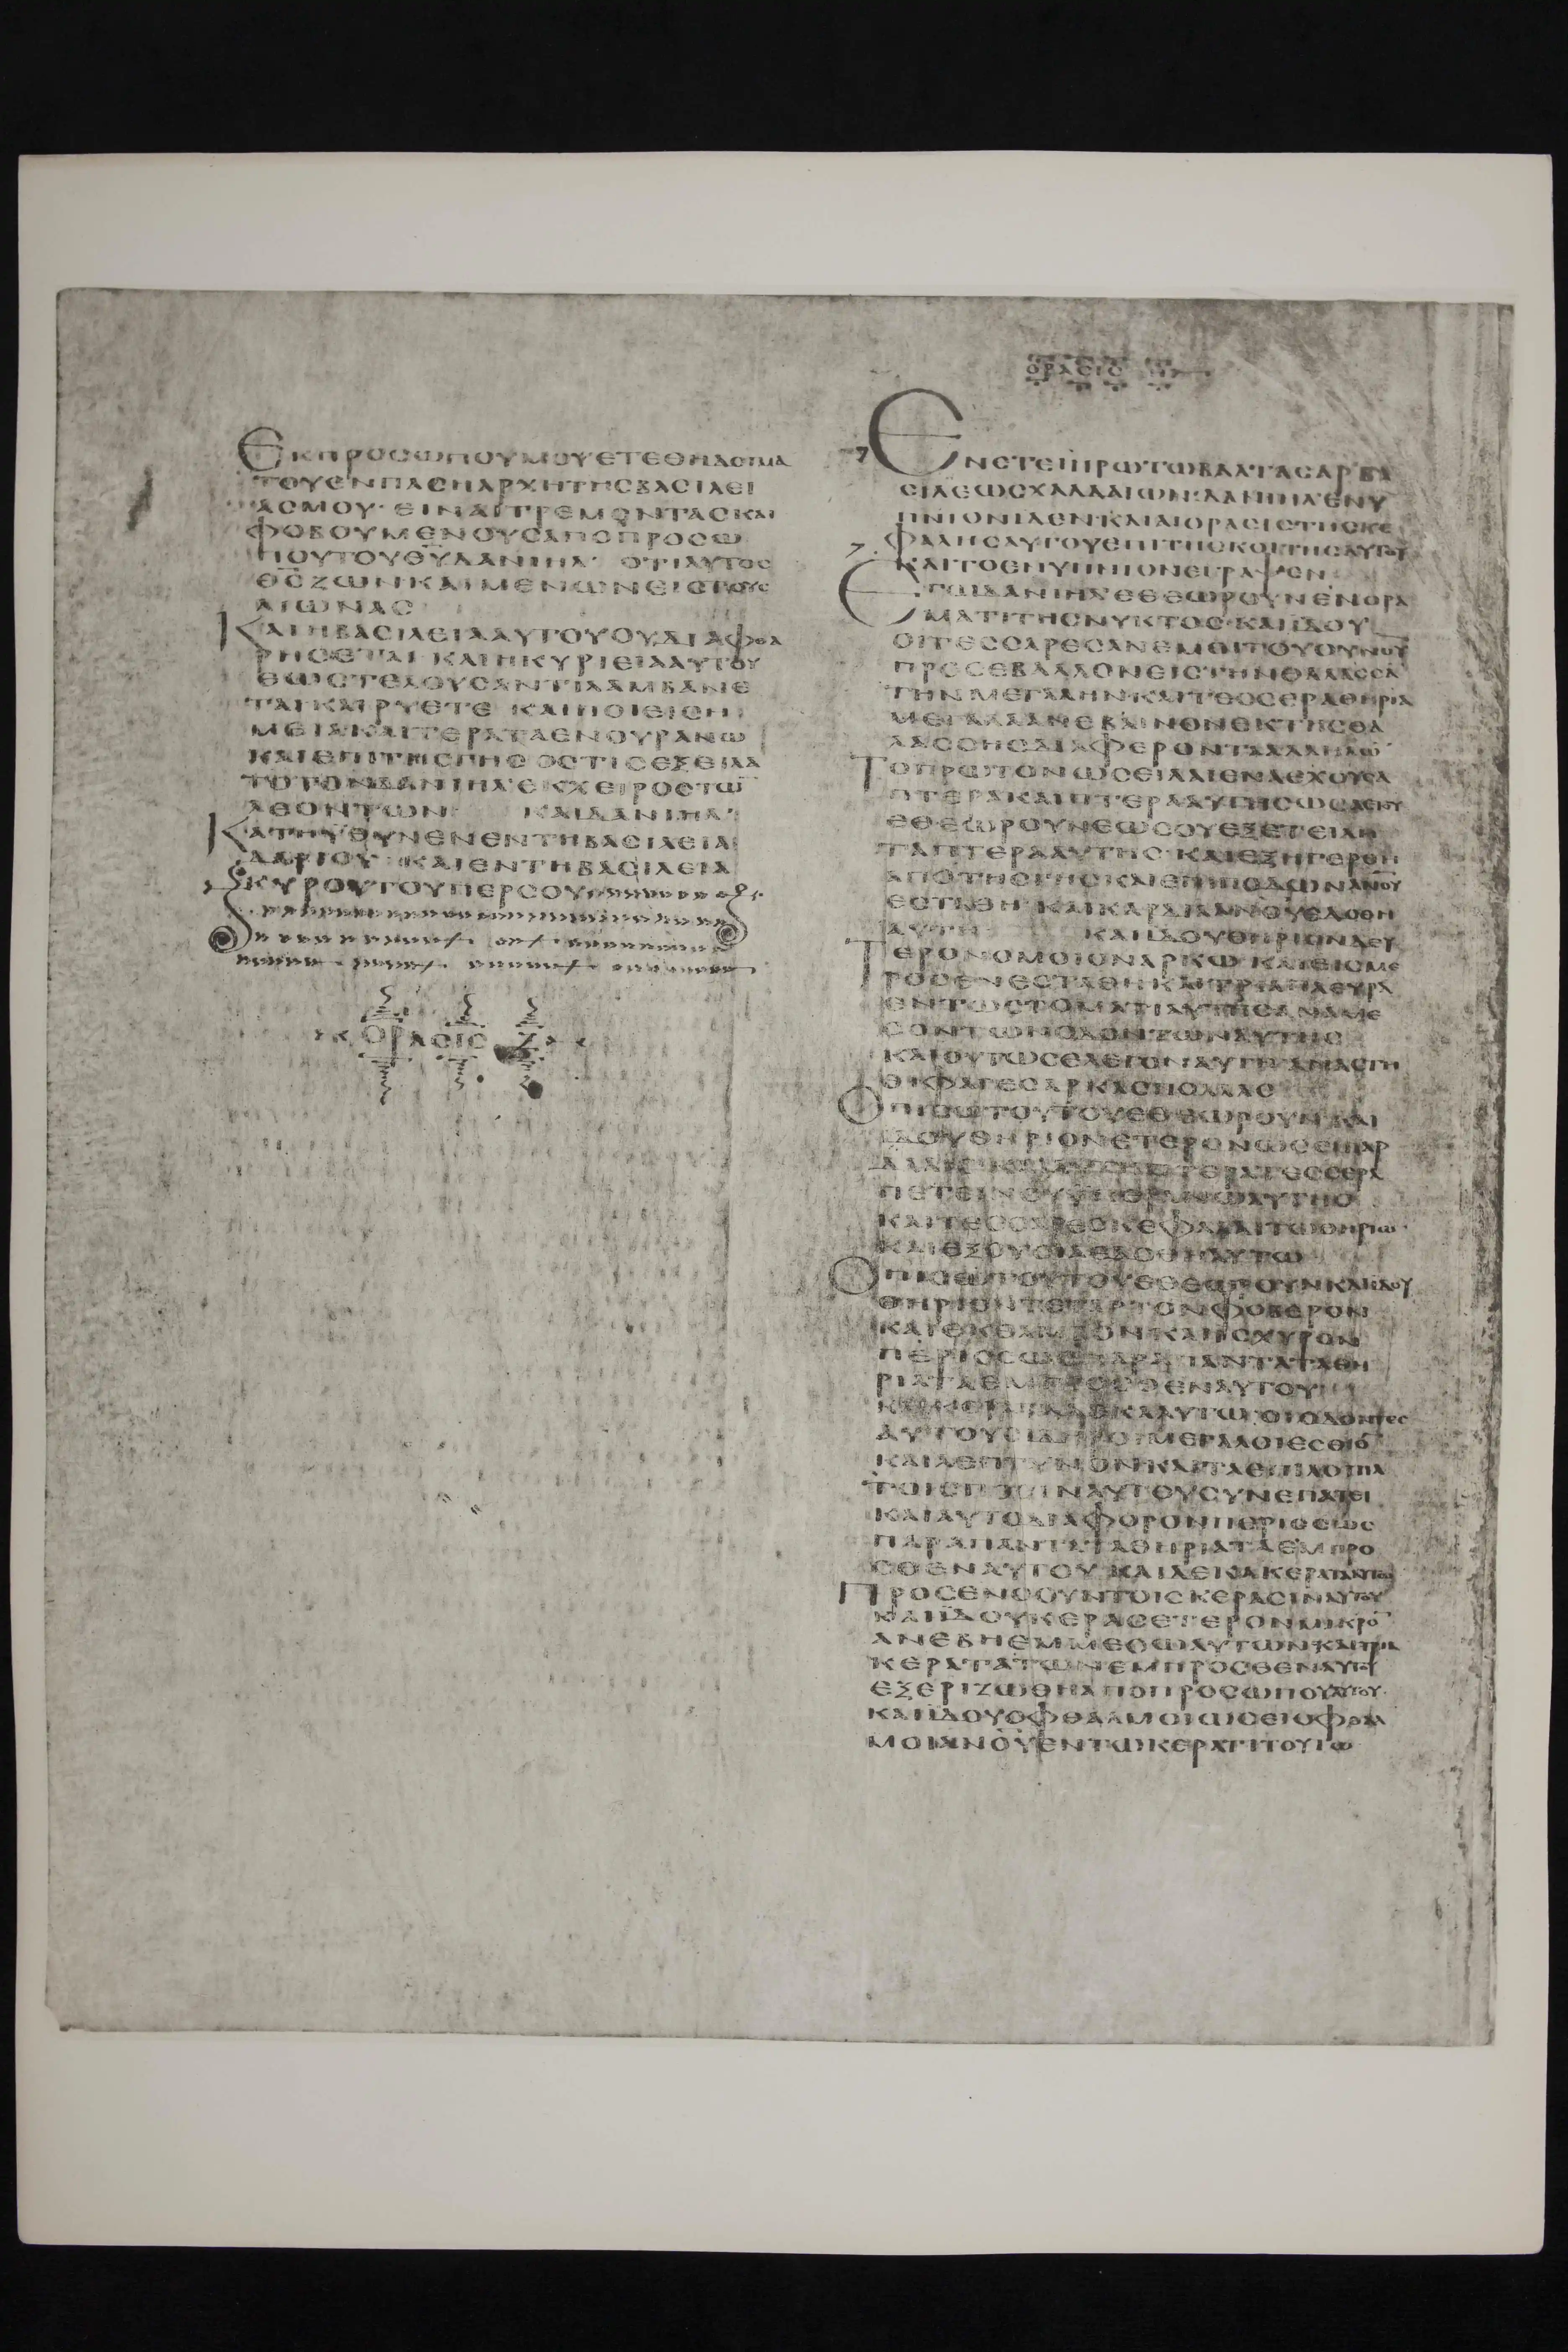 ΕΚΠΡΟCΩΠΟΥΜΟΥΕΤΕΘΗΔΟΓΜΑ
ΤΟΥΕΝΠΑCΗΑΡΧΗΤΗCΒΑCΙΛΕΙ
ΑCΜΟΥ·ΕΙΝΑΙΤΡΕΜΟΝΤΑCΚΑΙ
ΦΟΒΟΥΜΕΝΟΥCΑΠΟΠΡΟCΩ
ΠΟΥΤΟΥΘΥΔΑΝΙΗΛ· ΟΤΙΑΥΤΟC
ΘCΖΩΝΚΑΙΜΕΝΩΝΕΙCΤΟΥC
ΑΙΩΝΑC
ΚΑΙΗΒΑCΙΛΕΙΑΑΥΤΟΥΟΥΔΙΑΦΘΑ
ΡΗCΕΤΑΙ ΚΑΙΗΚΥΡΙΕΙΑΑΥΤΟΥ
ΕΩCΤΕΛΟΥCΑΝΤΙΛΑΜΒΑΝΕ
ΤΑΙΚΑΙΡΥΕΤΕ ΚΑΙΠΟΙΕΙCΗ
ΜΕΙΑΚΑΙΤΕΡΑΤΑΕΝΟΥΡΑΝΩ
ΚΑΙΕΠΙΤΗCΓΗC ΟCΤΙCΕΞΕΙΛΑ
ΤΟΤΟΝΔΑΝΙΗΛ·ΕΚΧΕΙΡΟCΤΩ
ΛΕΟΝΤΩΝ ΚΑΙΔΑΝΙΗΛ·
ΚΑΤΗΥΘΥΝΕΝΕΝΤΗΒΑCΙΛΕΙΑ
ΔΑΡΙΟΥ ΚΑΙΕΝΤΗΒΑCΙΛΕΙΑ
ΚΥΡΟΥΤΟΥΠΕΡCΟΥ
ΟΡΑCΙC Ζ
ΟΡΑCΙC
ΕΝΕΤΕΙΠΡΩΤΩΒΑΛΤΑCΑΡΒΑ
CΙΛΕΩCΧΑΛΔΑΙΩΝ·ΔΑΝΙΗΛ·ΕΝΥ
ΠΝΙΟΝΙΔΕΝΚΑΙΑΙΟΡΑCΙCΤΗCΚΕ
ΦΑΛΗCΑΥΤΟΥΕΠΙΤΗCΚΟΙΤΗCΑΥΤΟΥ
ΚΑΙΤΟΕΝΥΠΝΙΟΝΕΓΡΑΨΕΝ
ΕΓΩΔΑΝΙΗΛ·ΕΘΕΩΡΟΥΝΕΝΟΡΑ
ΜΑΤΙΤΗCΝΥΚΤΟC·ΚΑΙΪΔΟΥ
ΟΙΤΕCCΑΡΕCΑΝΕΜΟΙΤΟΥΟΥΝΟΥ
ΠΡΟCΕΒΑΛΛΟΝΕΙCΤΗΝΘΑΛΑCCΑ
ΤΗΝΜΕΓΑΛΗΝ·ΚΑΙΤΕCCΕΡΑΘΗΡΙΑ
ΜΕΓΑΛΑΑΝΕΒΑΙΝΟΝΕΚΤΗCΘΑ
ΛΑCCΗCΔΙΑΦΕΡΟΝΤΑΑΛΛΗΛΩ
ΤΟΠΡΩΤΟΝΩCΕΙΛΑΙΕΝΑΕΧΟΥCΑ
ΠΤΕΡΑΚΑΙΠΤΕΡΑΑΥΤΗCΩCΑΕΤΟΥ
ΕΘΕΩΡΟΥΝΕΩCΟΥΕΞΕΤΕΙΛΗ
ΤΑΠΤΕΡΑΑΥΤΗC·ΚΑΙΕΞΗΓΕΡΘΗ
ΑΠΟΤΗCΓΗCΚΑΙΕΠΙΠΟΔΩΝΑΝΟΥ
ΕCΤΑΘΗ·ΚΑΙΚΑΡΔΙΑΑΝΟΥΕΔΟΘΗ
ΑΥΤΗ ΚΑΙΪΔΟΥΘΗΡΙΟΝΔΕΥ
ΤΕΡΟΝΟΜΟΙΟΝΑΡΚΩ ΚΑΙΕΙCΜΕ
ΡΟCΕΝΕCΤΑΘΗΚΑΙΤΡΙΑΠΛΕΥΡΑ
ΕΝΤΩCΤΟΜΑΤΙΑΥΤΗCΑΝΑΜΕ
CΟΝΤΩΝΟΔΟΝΤΩΝΑΥΤΗC
ΚΑΙΟΥΤΩCΕΛΕΓΟΝΑΥΤΗΑΝΑCΤΗ
ΘΙΦΑΓΕCΑΡΚΑCΠΟΛΛΑC
ΟΠΙCΩΤΟΥΤΟΥΕΘΕΩΡΟΥΝΚΑΙ
ΪΔΟΥΘΗΡΙΟΝΕΤΕΡΟΝΩCΕΙΠΑΡ
ΠΕΤΕΙΝΟΥΥΠΕΡΑΝΩΑΥΤΗC
ΚΑΙΤΕCCΑΡΕCΚΕΦΑΛΑΙΤΩΘΗΡΙΩ
ΚΑΙΕΞΟΥCΙΑΕΔΟΘΗΑΥΤΩ
ΟΠΙCΩΤΟΥΤΟΥΕΘΕΩΡΟΥΝΚΑΙΪΔΟΥ
ΘΗΡΙΟΝΤΕΤΑΡΤΟΝΦΟΒΕΡΟΝ
ΚΑΙΕΚΘΑΜΒΟΝΚΑΙΪCΧΥΡΟΝ
ΠΕΡΙCCΩCΠΑΡΑΠΑΝΤΑΤΑΘΗ
ΡΙΑΤΑΕΜΠΡΟCΘΕΝΑΥΤΟΥ
ΑΥΤΟΥCΙΔΗΡΟΙΜΕΓΑΛΟΙΕCΘΙΟ
ΚΑΙΛΕΠΤΥΝΟΝΚΑΙΤΑΕΠΙΛΟΙΠΑ
ΤΟΙCΠΟCΙΝΑΥΤΟΥCΥΝΕΠΑΤΕΙ
ΚΑΙΑΥΤΟΔΙΑΦΟΡΟΝΠΕΡΙCCΩC
ΠΑΡΑΠΑΝΤΑΤΑΘΗΡΙΑΤΑΕΜΠΡΟ
CΘΕΝΑΥΤΟΥ ΚΑΙΔΕΚΑΚΕΡΑΤΑΑΥΤΩ
ΠΡΟCΕΝΟΟΥΝΤΟΙCΚΕΡΑCΙΝΑΥΤΟΥ
ΚΑΙΪΔΟΥΚΕΡΑCΕΤΕΡΟΝΜΙΚΡΟ
ΑΝΕΒΗΕΜΜΕCΩΑΥΤΩΝΚΑΙΤΡΙΑ
ΚΕΡΑΤΑΤΩΝΕΜΠΡΟCΘΕΝΑΥΤΟΥ
ΕΞΕΡΙΖΩΘΗΑΠΟΠΡΟCΩΠΟΥΑΥΤΟΥ
ΚΑΙΪΔΟΥΟΦΘΑΛΜΟΙΩCΕΙΟΦΘΑΛ
ΜΟΙΑΝΟΥΕΝΤΩΚΕΡΑΤΙΤΟΥΤΩ